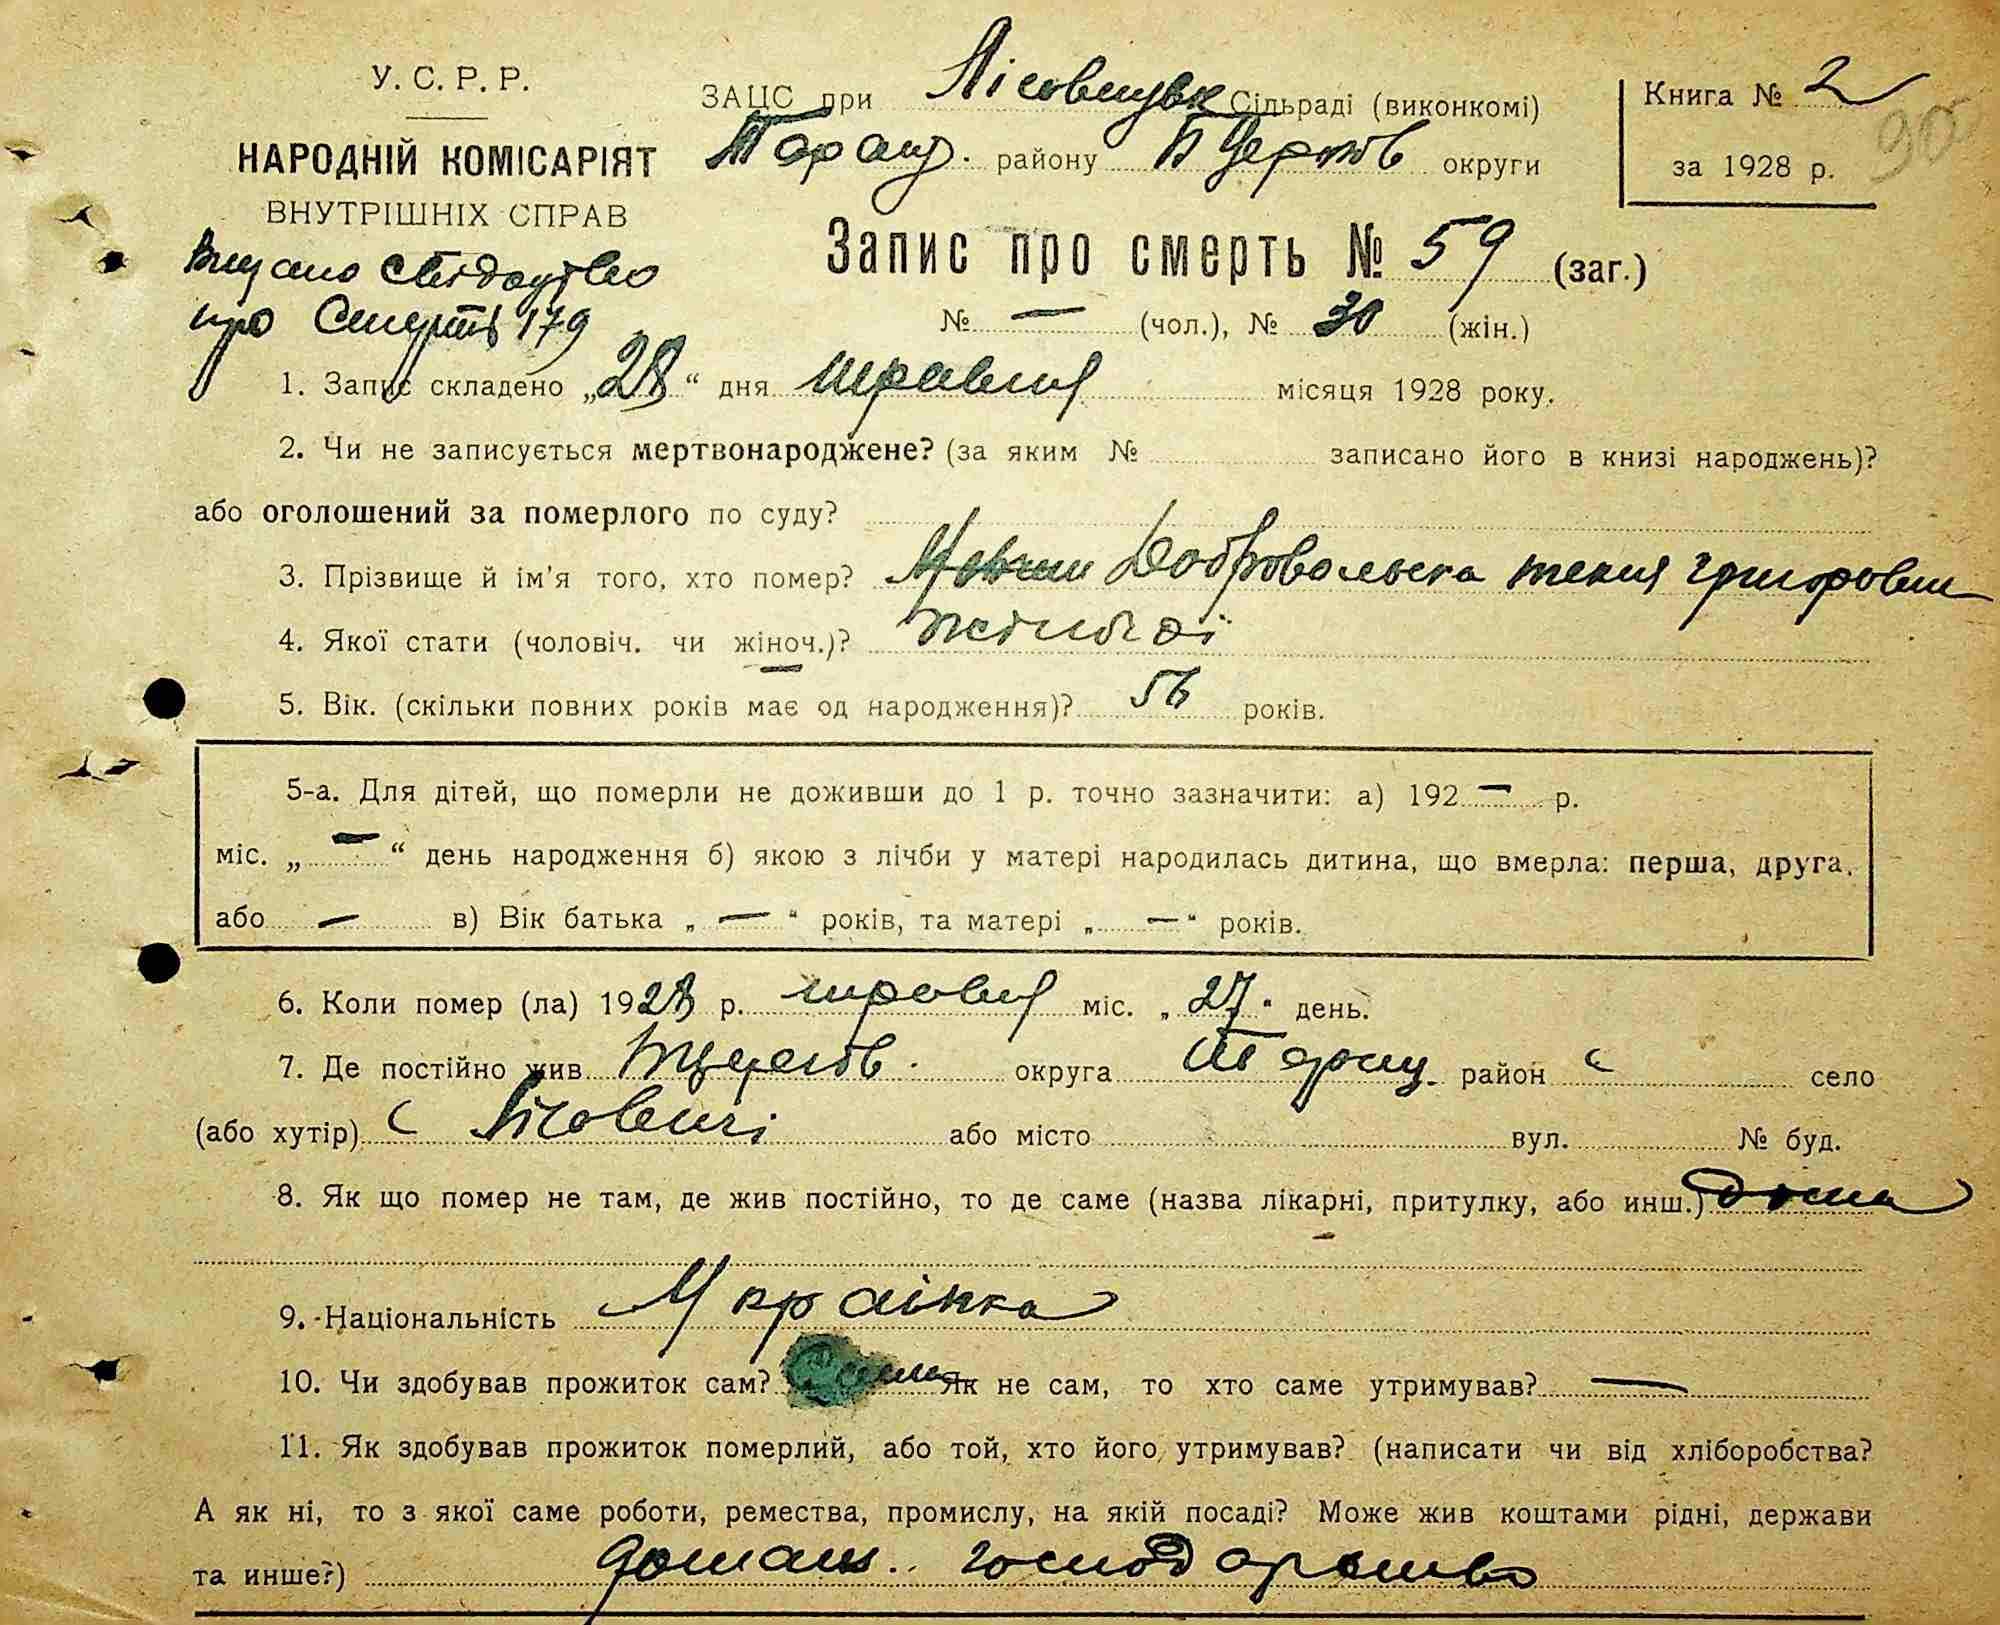 У. С. Р. Р.
НАРОДНІЙ КОМІСАРІЯТ
ВНУТРІШНІХ СПРАВ
Видано свідоцтво
про смерть 179
ЗАЦС при Лісовицьк Сільраді (виконкомі)
Таращ. району Б Церков округи
Книга № 2
за 1928 р.
90
Запис про смерть № 59 (заг.)
№ — (чол.), № 30 (жін.)
1. Запис складено „28“ дня травня місяця 1928 року.
2. Чи не записується мертвонароджене? (за яким № записано його в книзі народжень)?
або оголошений за померлого по суду?
3. Прізвище й ім'я того, хто помер? Добровольська Текля Григоровн
4. Якої стати (чоловіч. чи жіноч.)? жіночої
5. Вік. (скільки повних років має од народження)? 56 років.
5-а. Для дітей, що померли не доживши до 1 р. точно зазначити: а) 192 — р.
міс. „ — “ день народження б) якою з лічби у матері народилась дитина, що вмерла: перша, друга,
або — в) Вік батька „ — “ років, та матері „ — “ років.
6. Коли помер (ла) 1928 р. травня міс. „27“ день.
7. Де постійно жив Бцерков. округа Таращ. район с село
(або хутір) с Лісовичі або місто вул. № буд.
8. Як що помер не там, де жив постійно, то де саме (назва лікарні, притулку, або инш.) дома
9. Національність Українка
10. Чи здобував прожиток сам? Сама Як не сам, то хто саме утримував? —
11. Як здобував прожиток померлий, або той, хто його утримував? (написати чи від хліборобства?
А як ні, то з якої саме роботи, ремества, промислу, на якій посаді? Може жив коштами рідні, держави
та инше?) домашн.. господарство